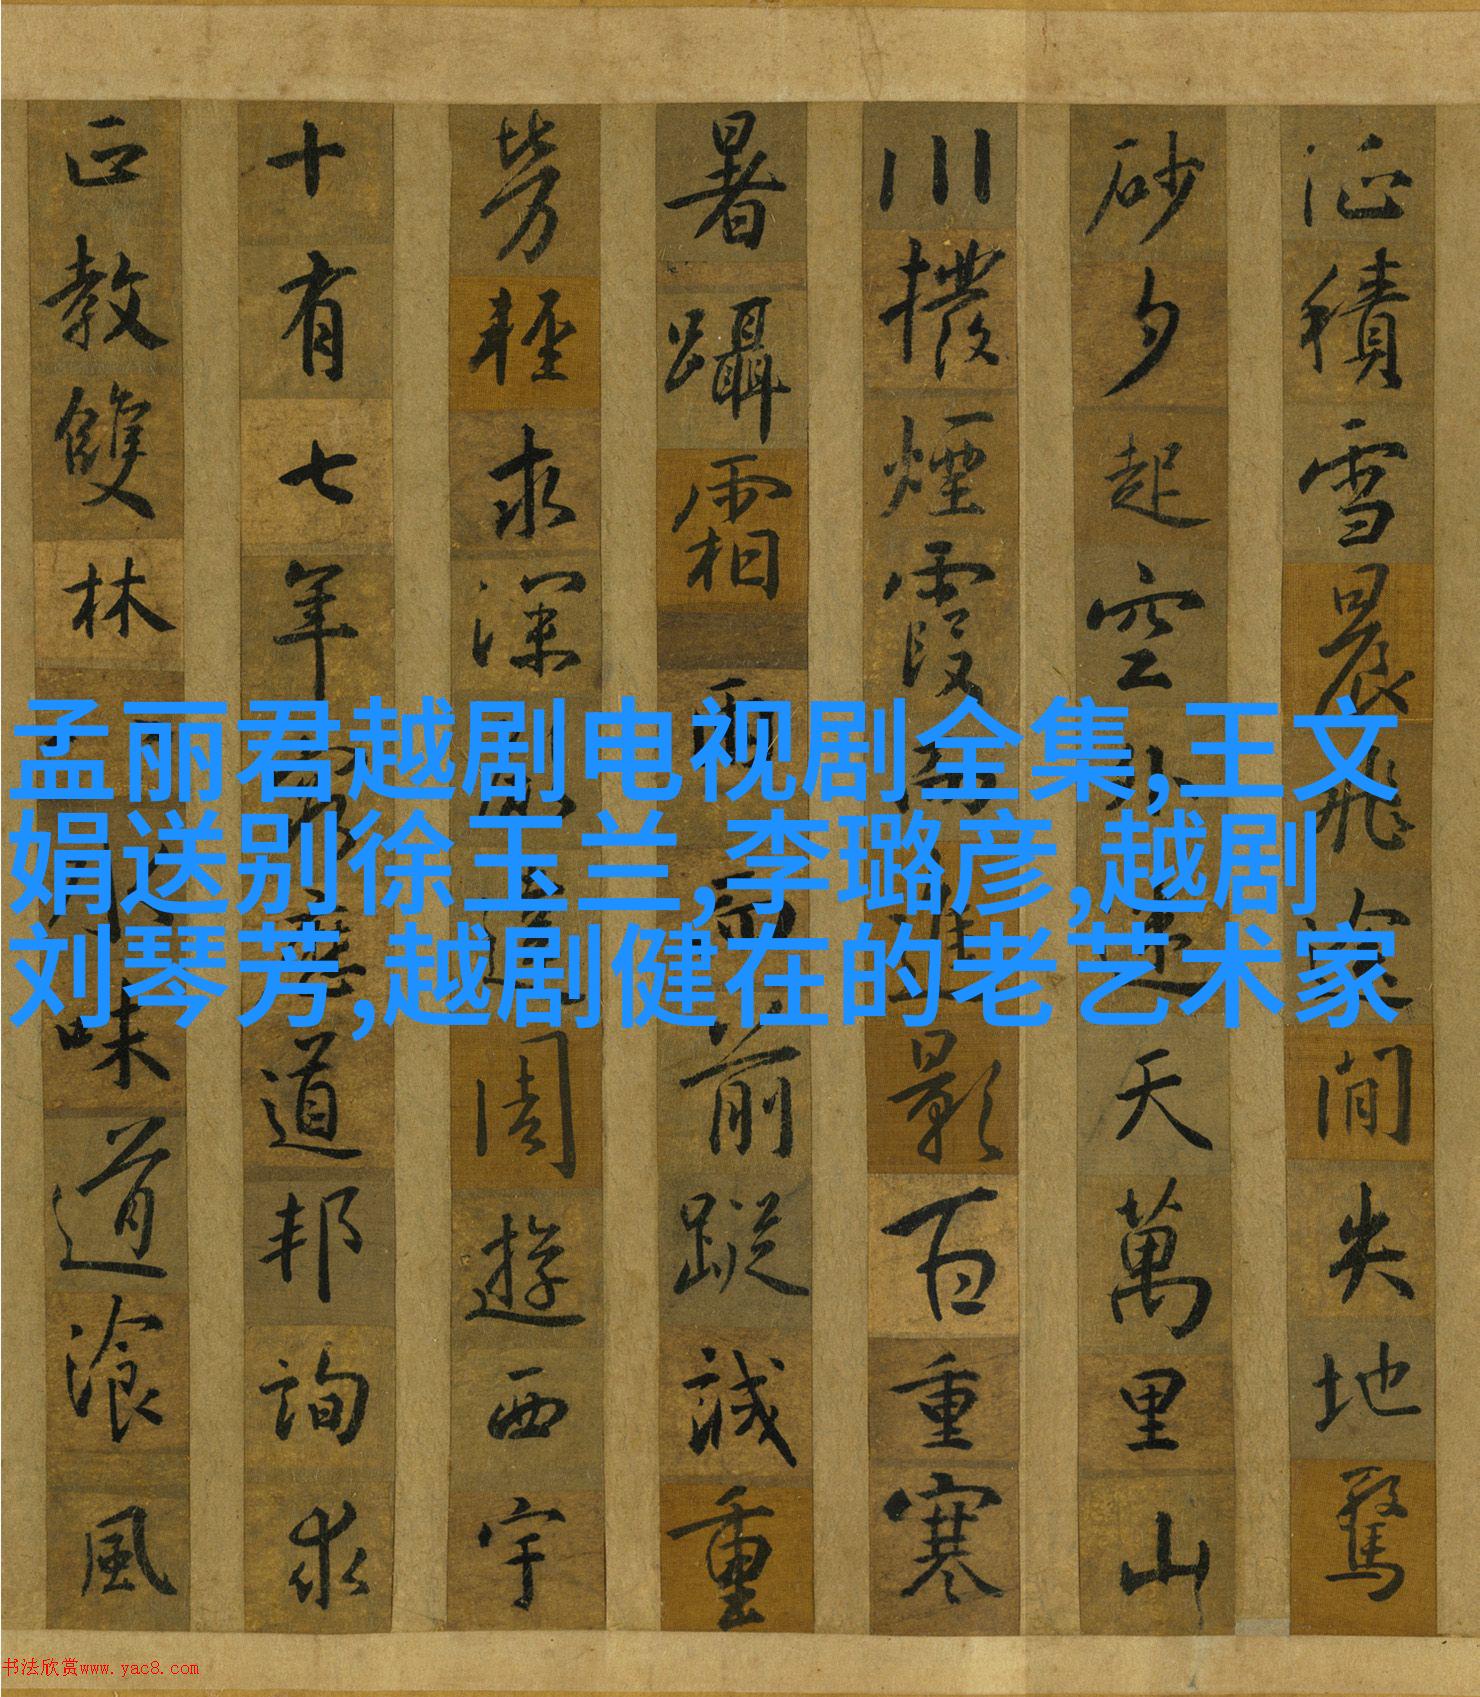 征積雪晨飛途閒失地驚
砂夕起空外迷天萬里山
川撥煙霞而進影百重寒
暑躡霜雨而前蹤誠重
勞輕求深周遊西宇
十有七年道邦詢求
正教雙林味道湌風
孟丽君越剧电视剧全集,王文
娟送别徐玉兰,李璐彦,越剧
刘琴芳,越剧健在的老艺术家
书法欣赏www.yac8.com